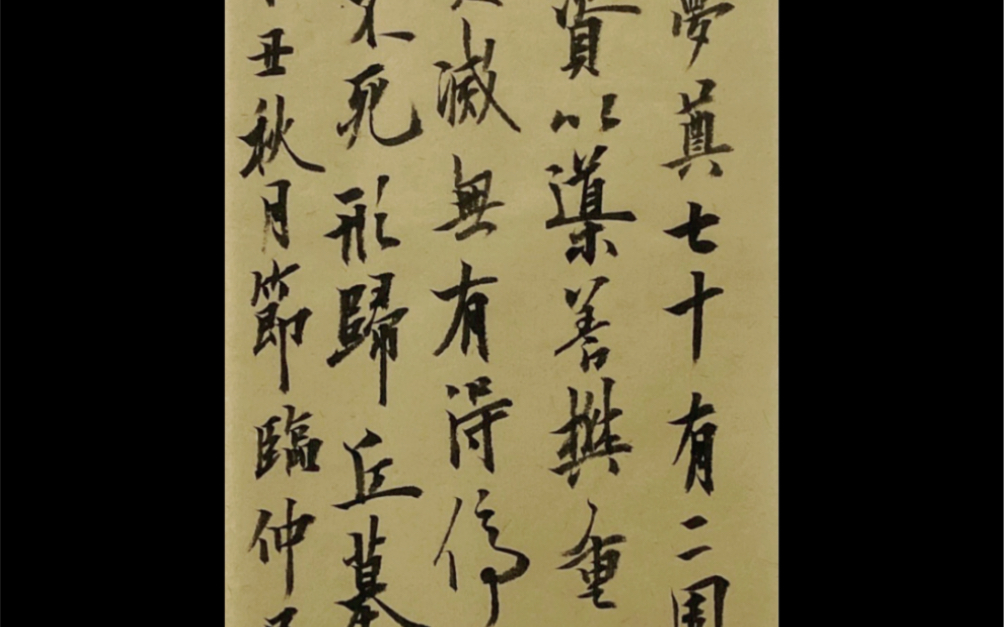 夢奠七十有二周
資以導善樊重
滅無有得停
死形歸丘墓
丑秋月節臨仲